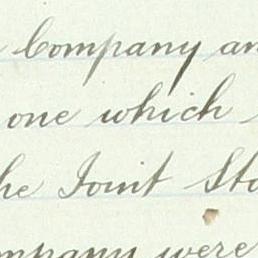 Company an
one which
he Joint Sto
ompany were